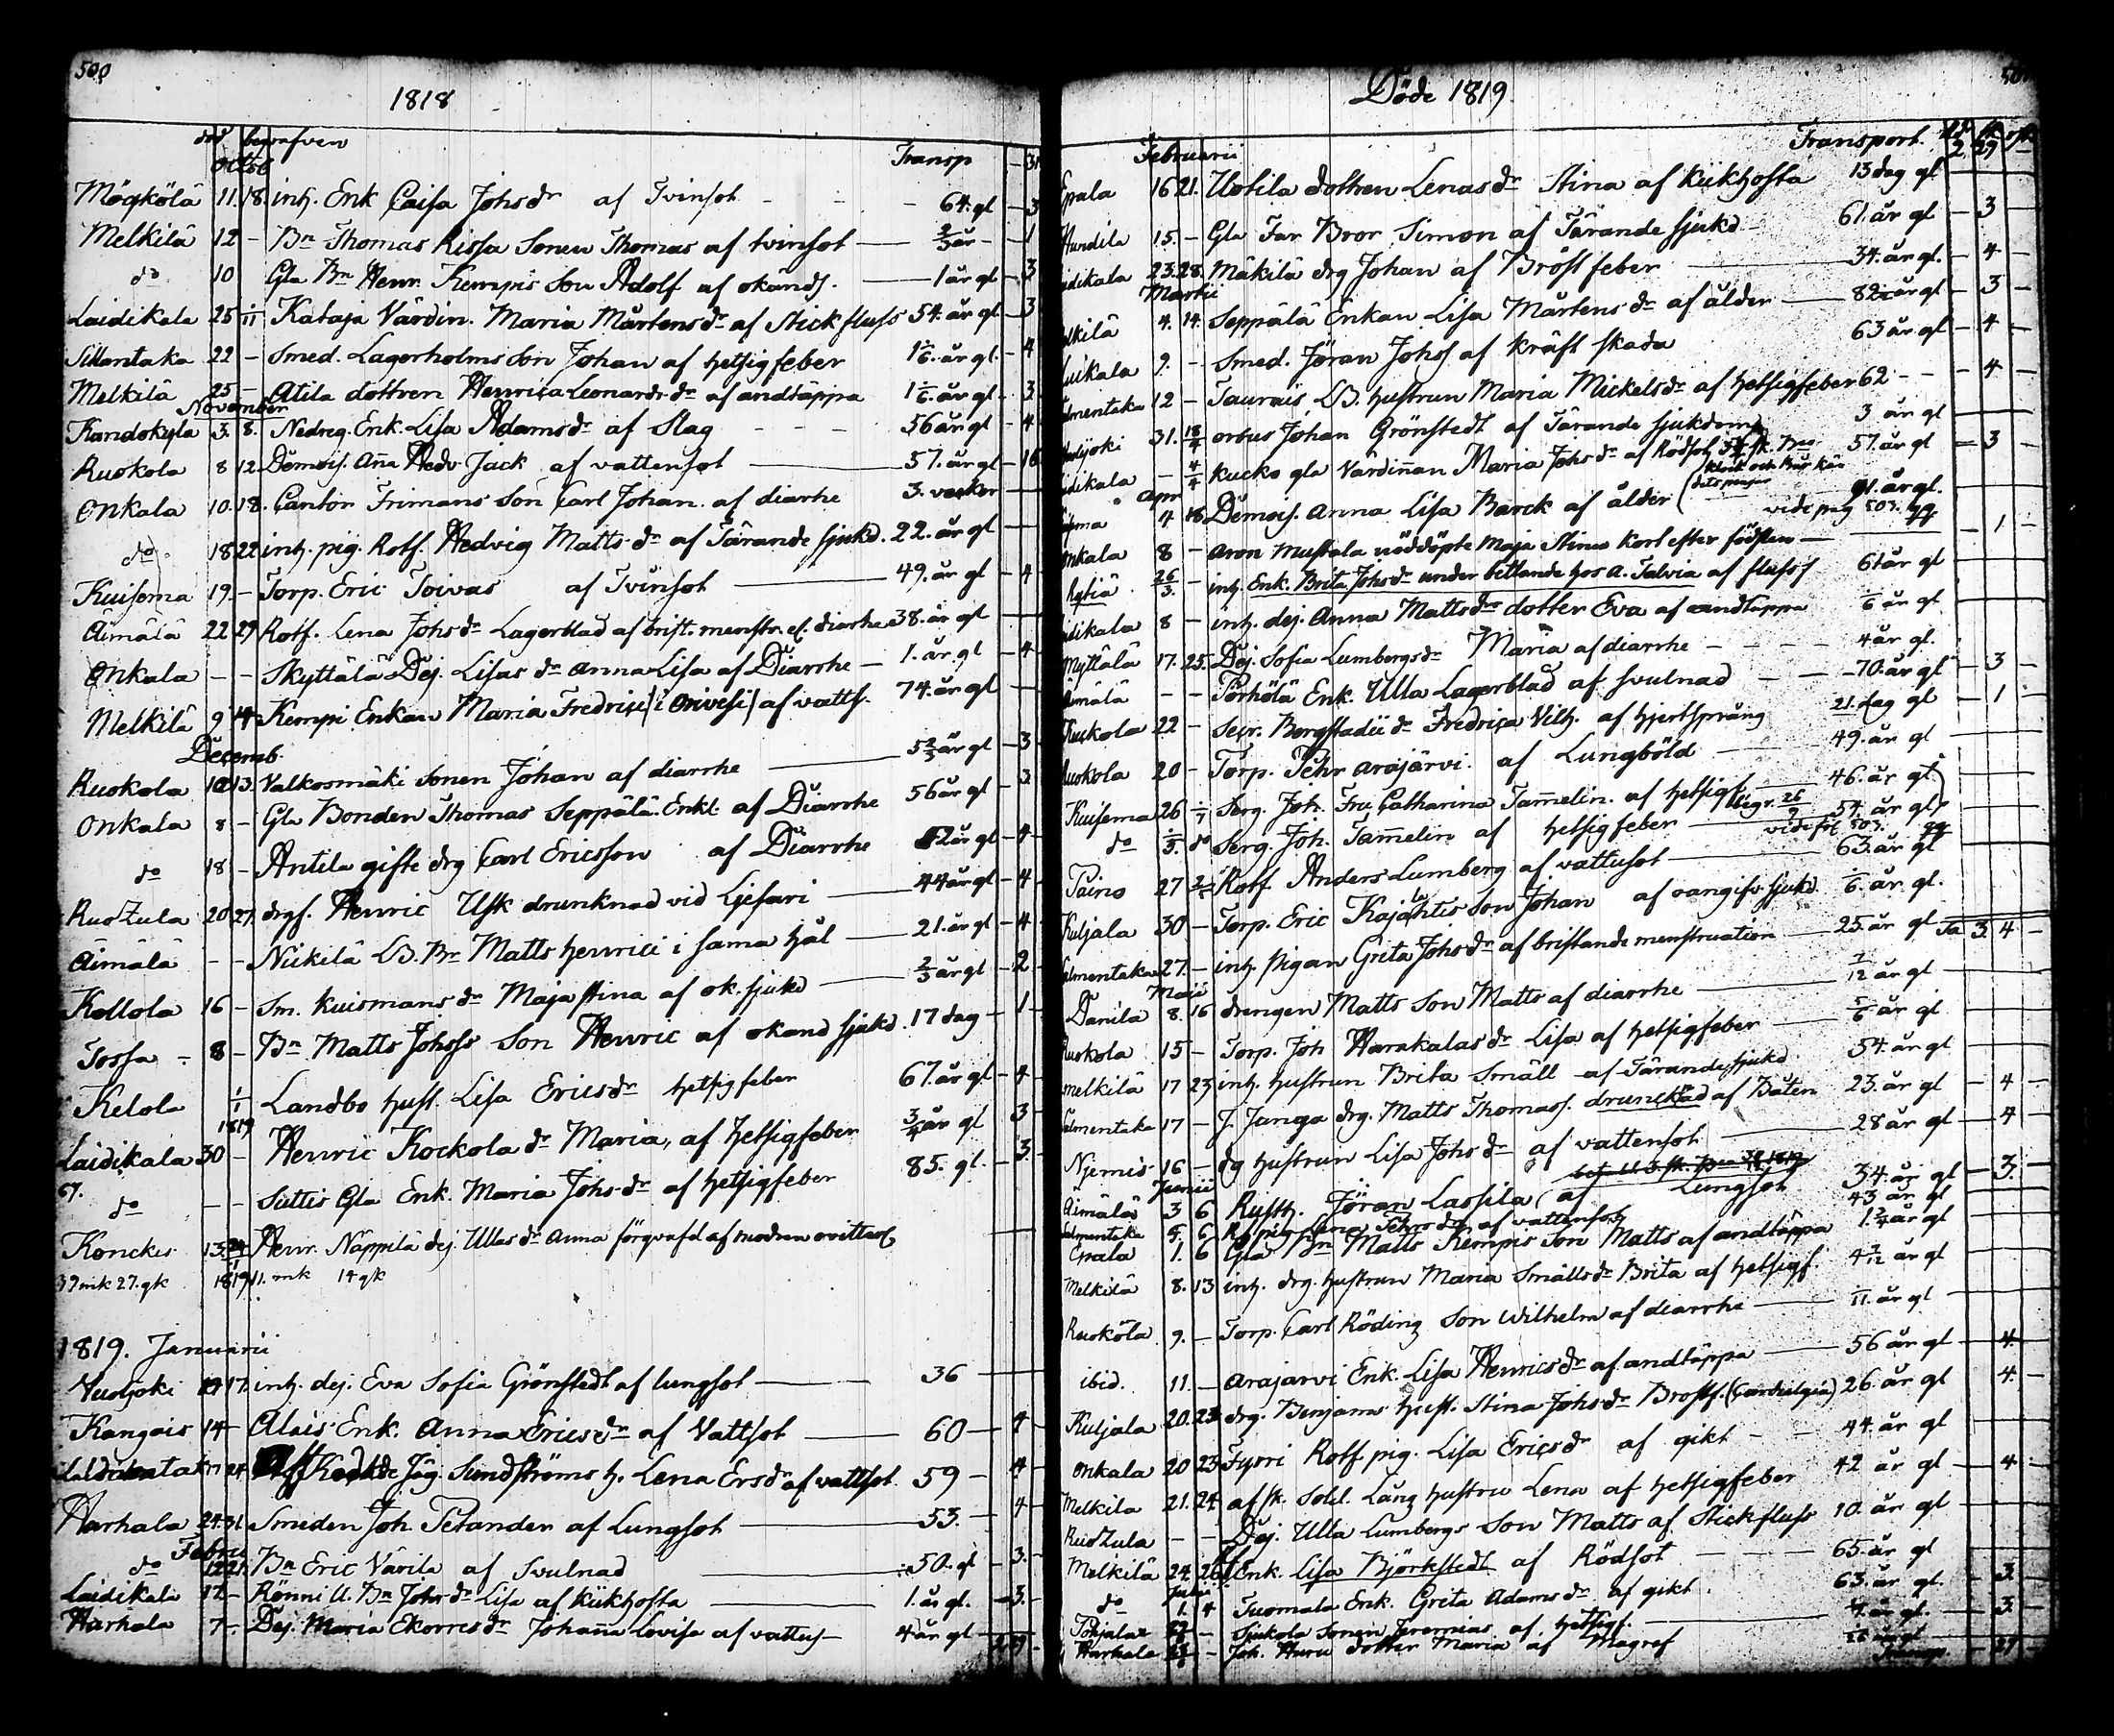 500
1818
död begrafven
Octob Transp 31
Mögkölä 11. 18. inh. Enk Caisa Johsdr af Tvinsot 64. gl 3
Melkilä 12 - Bn Thomas Rissa Sonen Thomas af tvinsot 2/3 år 1
do 10 Gla Bn Henr. Kempis Son Adolf af okänds. 1 år gl 3
Laidikala 25 1/11 Kataja Värdin. Maria Mårtensdr af Stickfluss 54. år gl 3
Sillantaka 22 - Smed. Lagerholms Son Johan af hetsigfeber 1 1/6. år gl. 4
Melkilä 25 - Atila dottren Henrica Leonardsdr af andtäppa 1 1/6. år gl 3
November
Kandokyla 3. 8. Nedreg. Enk. Lisa Adamsdr af Slag 56 år gl 4
Ruokola 8 12 Demois. Aña Hedv. Jack af vattensot 57. år gl 16
Onkala 10. 18. Cantor Frimans Son Carl Johan af diarhe 3. vecker
do 18 22 inh. pig. Rotf. Hedvig Mattsdr af Tärande sjukd. 22. år gl
Kuisema 19. - Torp. Eric Toivas af Tvinsot 49. år gl 4
Äimälä 22 29 Rotf. Lena Johsdr Lagerblad af brist. menstr. diarhe 38. år gl
Onkala - - Skyttälä Dej. Lisas dr Anna Lisa af Diarrhe 1. år gl 4
Melkilä 9 14 Kempi Enkan Maria Fredrici i Orivesi af vatts. 74. år gl
Decemb.
Ruokola 10 13. Valkosmäki Sonen Johan af diarrhe 5 2/3 år gl 3
Onkala 8 - Gla Bonden Thomas Seppälä. Enkl. af Diarrhe 56 år gl 3
do 18 - Antila gifte drg Carl Ericsson af Diarrhe 52 år gl 4
Ruozula 20 27. drgs. Henric Usk drunknad vid Ljefari 44 år gl 4
Äimälä - - Niikilä LB. Br Matts Henrici i sama hål 21. år gl 4
Kollola 16 - Sm. Kuismans dr Maja Stina af ok. sjukd 2/3 år gl 2
Tossa 8 - Bn Matts Johss Son Henric af okänd sjukd. 17 dag 1
Kelola 1/1 1819 Landbo hust. Lisa Ericsdr hetsigfeber 67. år gl 4
Laidikala 30 - Henric Kockola dr Maria, af hetsigfeber 3/4 år gl 3
57.
do - - Suttis Gla Enk. Maria Johsdr af hetsigfeber 85. gl. 3.
Konckis 13. Henr. Näppilä dej. Ullas dr Anna förqvafd af modren
37 mk 27. qk 1819 11. mk 14 qk
1819. Januarii
Vuolijoki 17. inh. dej. Eva Sofia Grönstedt af lungsot 36
Kangais 14 - Alais Enk. Anna Ericsdr af Vattsot 60 4
Jäg. Sundströms h. Lena Ersdr af vattsot 59 4
Harhala 24. 31. Smeden Joh. Petander af Lungsot 53. 4
Febru
do Bn Eric Värila af Svulnad 50. gl 3.
Laidikala 17 - Rönni U. Bn Johsdr Lisa af kikhosta 1. år gl. 3.
Harhala 7 - Dej. Maria Ekorres dr Johaña Lovisa af vattus 4 år gl
Döde 1819.
Februarii Transport. 2 29
Epala 16 21. Uotila dottren Lenas dr Stina af kikhosta 13 dag gl
Hundila 15. - Gla Far Bror Simon af Tärande sjukd 61. år gl 3
Laidikala 23. 28. Mäkilä drg Johan af Bröst feber 34. år gl. 4
Martii
Melkilä 4. 14. Seppälä Enkan Lisa Mårtensdr af ålder 82. år gl 3
9. - Smed. Jöran Johs af kräft skada 63 år gl 4
Salmentaka 12 - Taurais LB. hustrun Maria Mickelsdr af hetsigfeber 62 4
Vuolijoki 31. 18/4 Johan Grönstedt af Tärande sjukdom 3 år gl
Laidikala - 4/4 Kucko gla Värdiñan Maria Johsdr af Rödsot 57. år gl 3
Apr
Kuisema 4 18 Demois. Anna Lisa Barck af ålder 91. år gl. vide pag 503.
Onkala 8 - Aron Mustala nöddöpte Maja Stina kort efter födslen 1
Rytiä 26/3. - inh. Enk. Brita Johsdr under bettlande hos A. Talvia af fluss 61 år gl
Laidikala 8 - inh. dej. Anna Mattsdrs dotter Eva af andtäppa 1/6 år gl
Myttälä 17. 25. Dej. Sofia Lumbergs dr Maria af diarrhe 4 år gl.
Äimälä - - Pörhölä Enk. Ulla Lagerblad af svulnad 70. år gl 3
Ruokola 22 - Secr. Bergstadii dr Fredrica Vilh. af hjertsprång 21. dag gl 1
Ruokola 20 - Torp. Pehr Arajärvi. af Lungböld 49. år gl
Kuisema 26 1/7 Serg. Joh. Fru Catharina Tam̃elin. af hetsigf. 46. år gl
do do Serg. Joh. Tam̃elin af hetsigfeber 54. år gl vide fol 503.
Paino 27 Rotf. Anders Lumberg af vattusot 63. år gl
Kuljala 30 - Torp. Eric Son Johan af oangifv. sjukd. 1/6. år gl.
Salmentaka 27. - inh. pigan Greta Johsdr af bristande menstruation 25. år gl Sa 3. 4
Maji
Danila 8. 16 drengen Matts Son Matts af diarrhe 7/12 år gl
Ruokola 15 - Torp. Joh Harakalas dr Lisa af hetsigfeber 5/6 år gl
Melkilä 17 23 inh. hustrun Brita Smäll af Tärande sjukd. 54. år gl
Salmentaka 17 - J. Junga drg. Matts Thomass. drunckad af Båten 23. år gl 4
Njemis 16 - dg hustrun Lisa Johsdr af vattensot 28 år gl 4
Junii
Äimälä 3 6 Rusth. Jöran Lassila af Lungsot 34. år gl 3.
Salmentaka 5. 6 Rf pig Lena Pehrsdr af vattensot 43 år gl
Epala 1. 6 Gla Bn Matts Kempis Son Matts af andtäppa 1. 3/4 år gl
Melkilä 8. 13 inh. drg. hustrun Maria Smälls dr Brita af hetsigf. 4 7/12 år gl
Ruokola 9. - Torp. Carl Röding Son Wilhelm af diarrhe 1/11. år gl
ibid. 11. - Arajärvi Enk. Lisa Henricsdr af andtäppa 56 år gl 4.
Kuljala 20. 23 drg. Benjams hust. Stina Johsdr Brostf. (Cardialgia) 26. år gl 4.
Onkala 20 23 Fyori Rotf. pig. Lisa Ericsdr af gikt 44. år gl
Melkilä 21. 24. afsk. Sold. Lång hustru Lena af hetsigfeber 42 år gl 4
Ruozula - - Dej. Ulla Lumbergs Son Matts af Stickfluss 10. år gl
Melkilä 24. 26 Enk. Lisa Björkstedt af Rödsot 65. år gl
Julii
do 1. 4 Tuomala Enk. Greta Adamsdr af gikt. 63. år gl. 3.
Pohjala - Sjukola Sonen Jeremias af hetsigf. år gl. 3.
Harhala - Joh. dotter Maria af Magref 29